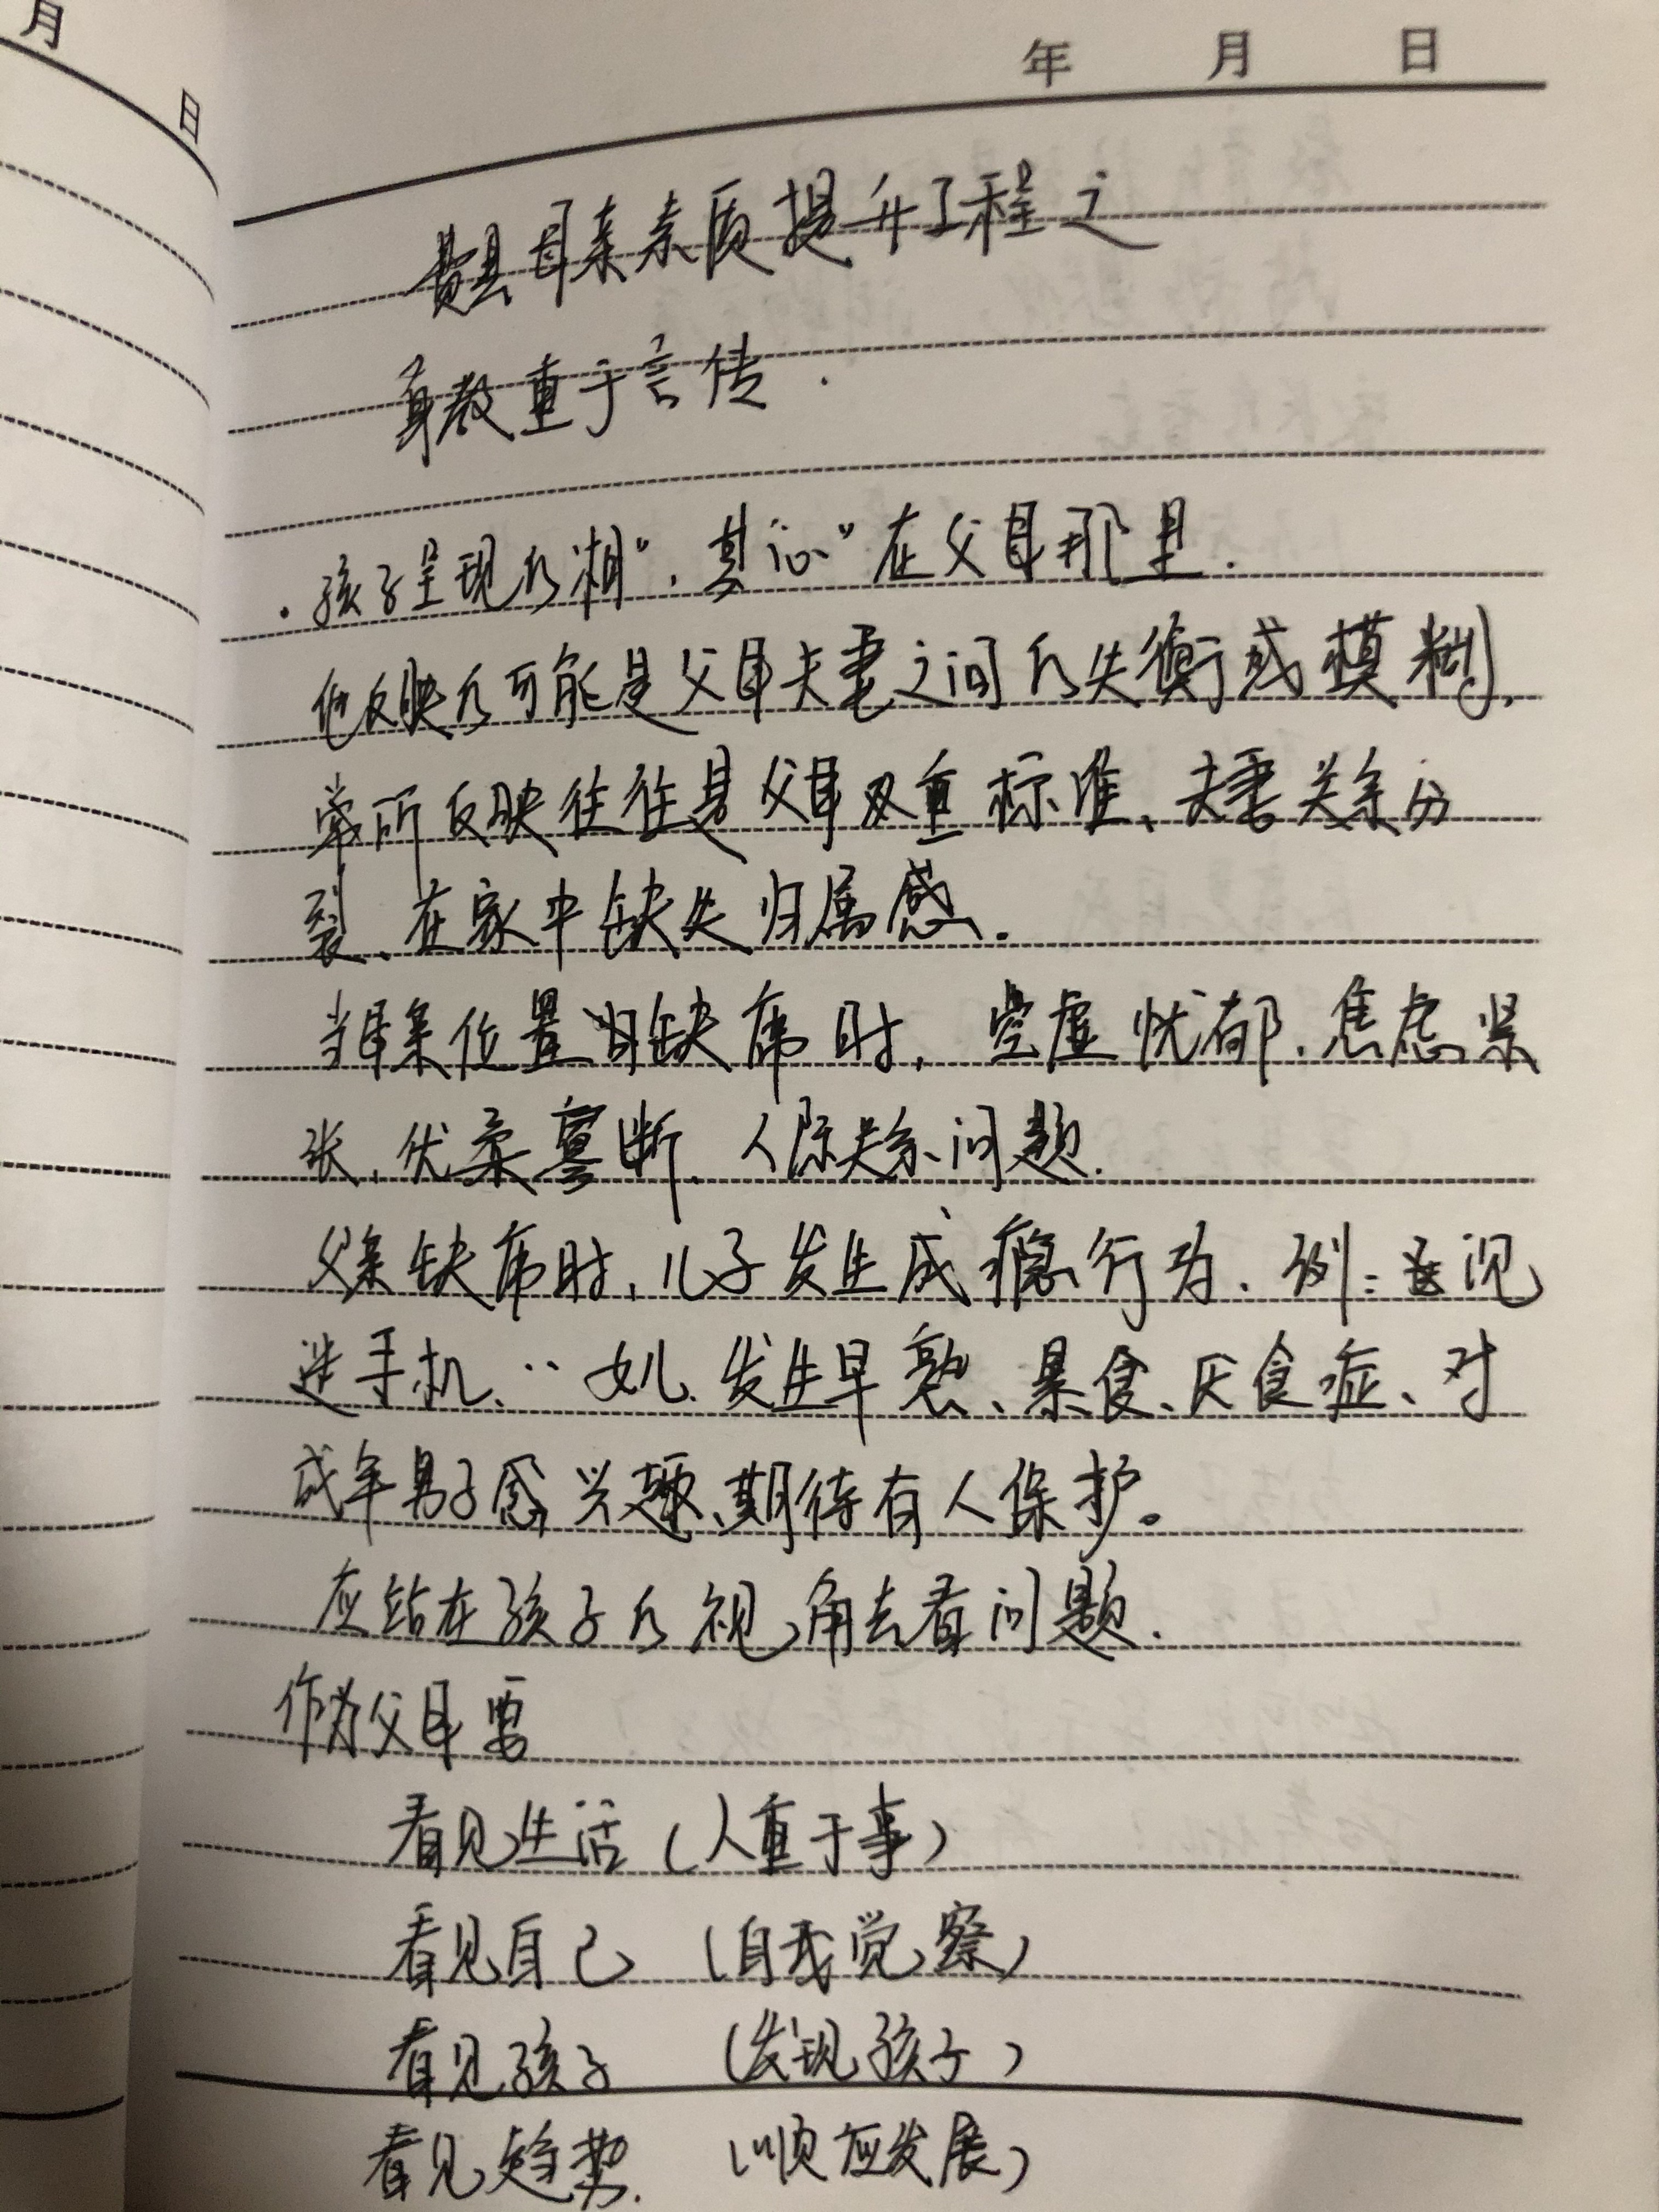 年 月 日
月
日
费县母亲素质提升工程之
身教重于言传.
.孩子呈现的“相”.其“心”在父母那里.
他反映的可能是父母夫妻之间的失衡或模糊,
常所反映往往是父母双重标准、夫妻关系分
裂、在家中缺失归属感.
当母亲位置缺席时,空虚忧郁.焦虑紧
张,优柔寡断.人际关系问题.
父亲缺席时,儿子发生成瘾行为.例:
迷手机、‥女儿.发生早熟、暴食、厌食症、对
成年男子感兴趣、期待有人保护。
应站在孩子的视角去看问题.
作为父母要
看见生活(人重于事)
看见自己(自我觉察)
看见孩子(发现孩子)
看见趋势.(顺应发展)